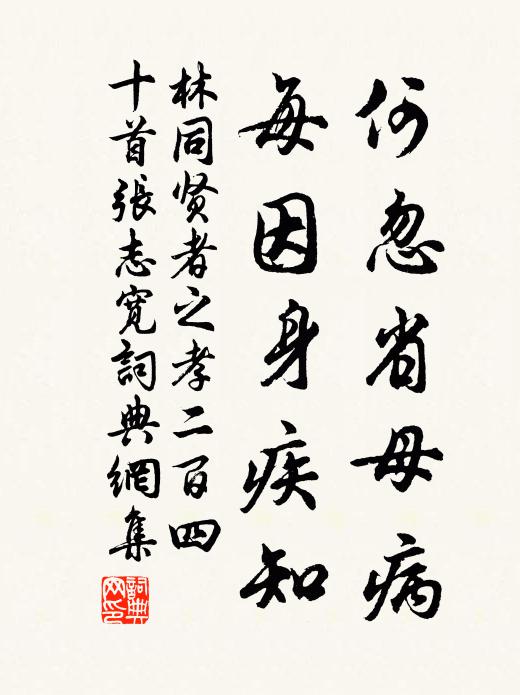 何忽省母病
每因身疾知
林同贤者之孝二百四
十首張志寬詞典網集
詞典
网印